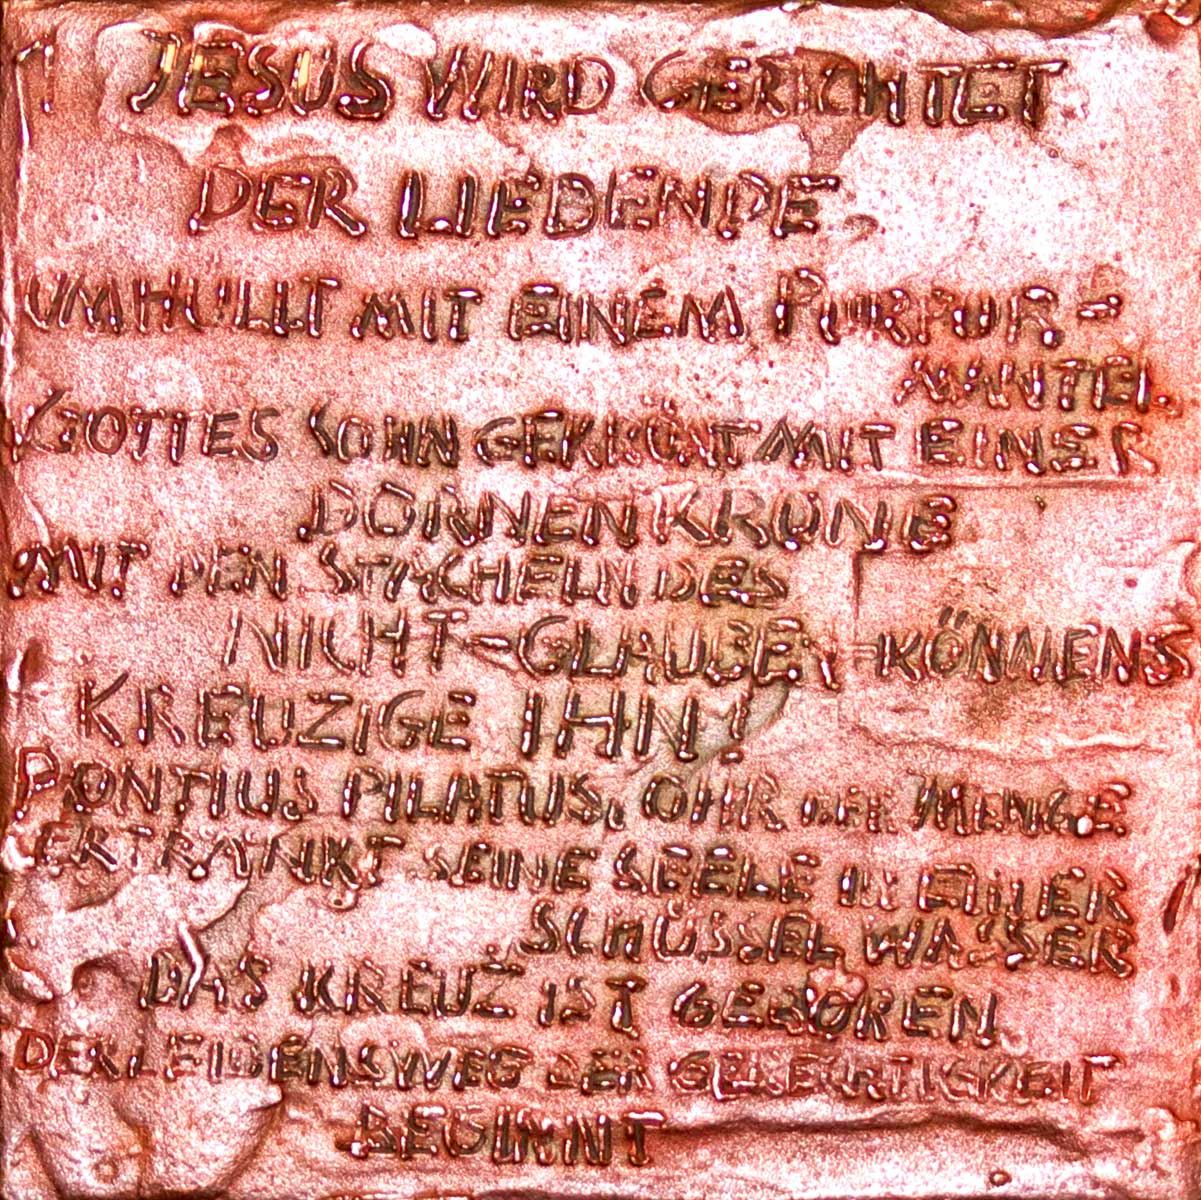 1 JESUS WIRD GERICHTET
DER LIEBENDE,
UMHÜLLT MIT EINEM PURPUR-
MANTEL.
GOTTES SOHN GEKRÖNT MIT EINER
DORNENKRONE
MIT DEN STACHELN DES
NICHT-GLAUBEN-KÖNNENS
KREUZIGE IHN!
PONTIUS PILATUS, OHR DER MENGE
ERTRÄNKT SEINE SEELE IN EINER
SCHÜSSEL WASSER
DAS KREUZ IST GEBOREN.
DER LEIDENSWEG DER GERECHTIGKEIT
BEGINNT